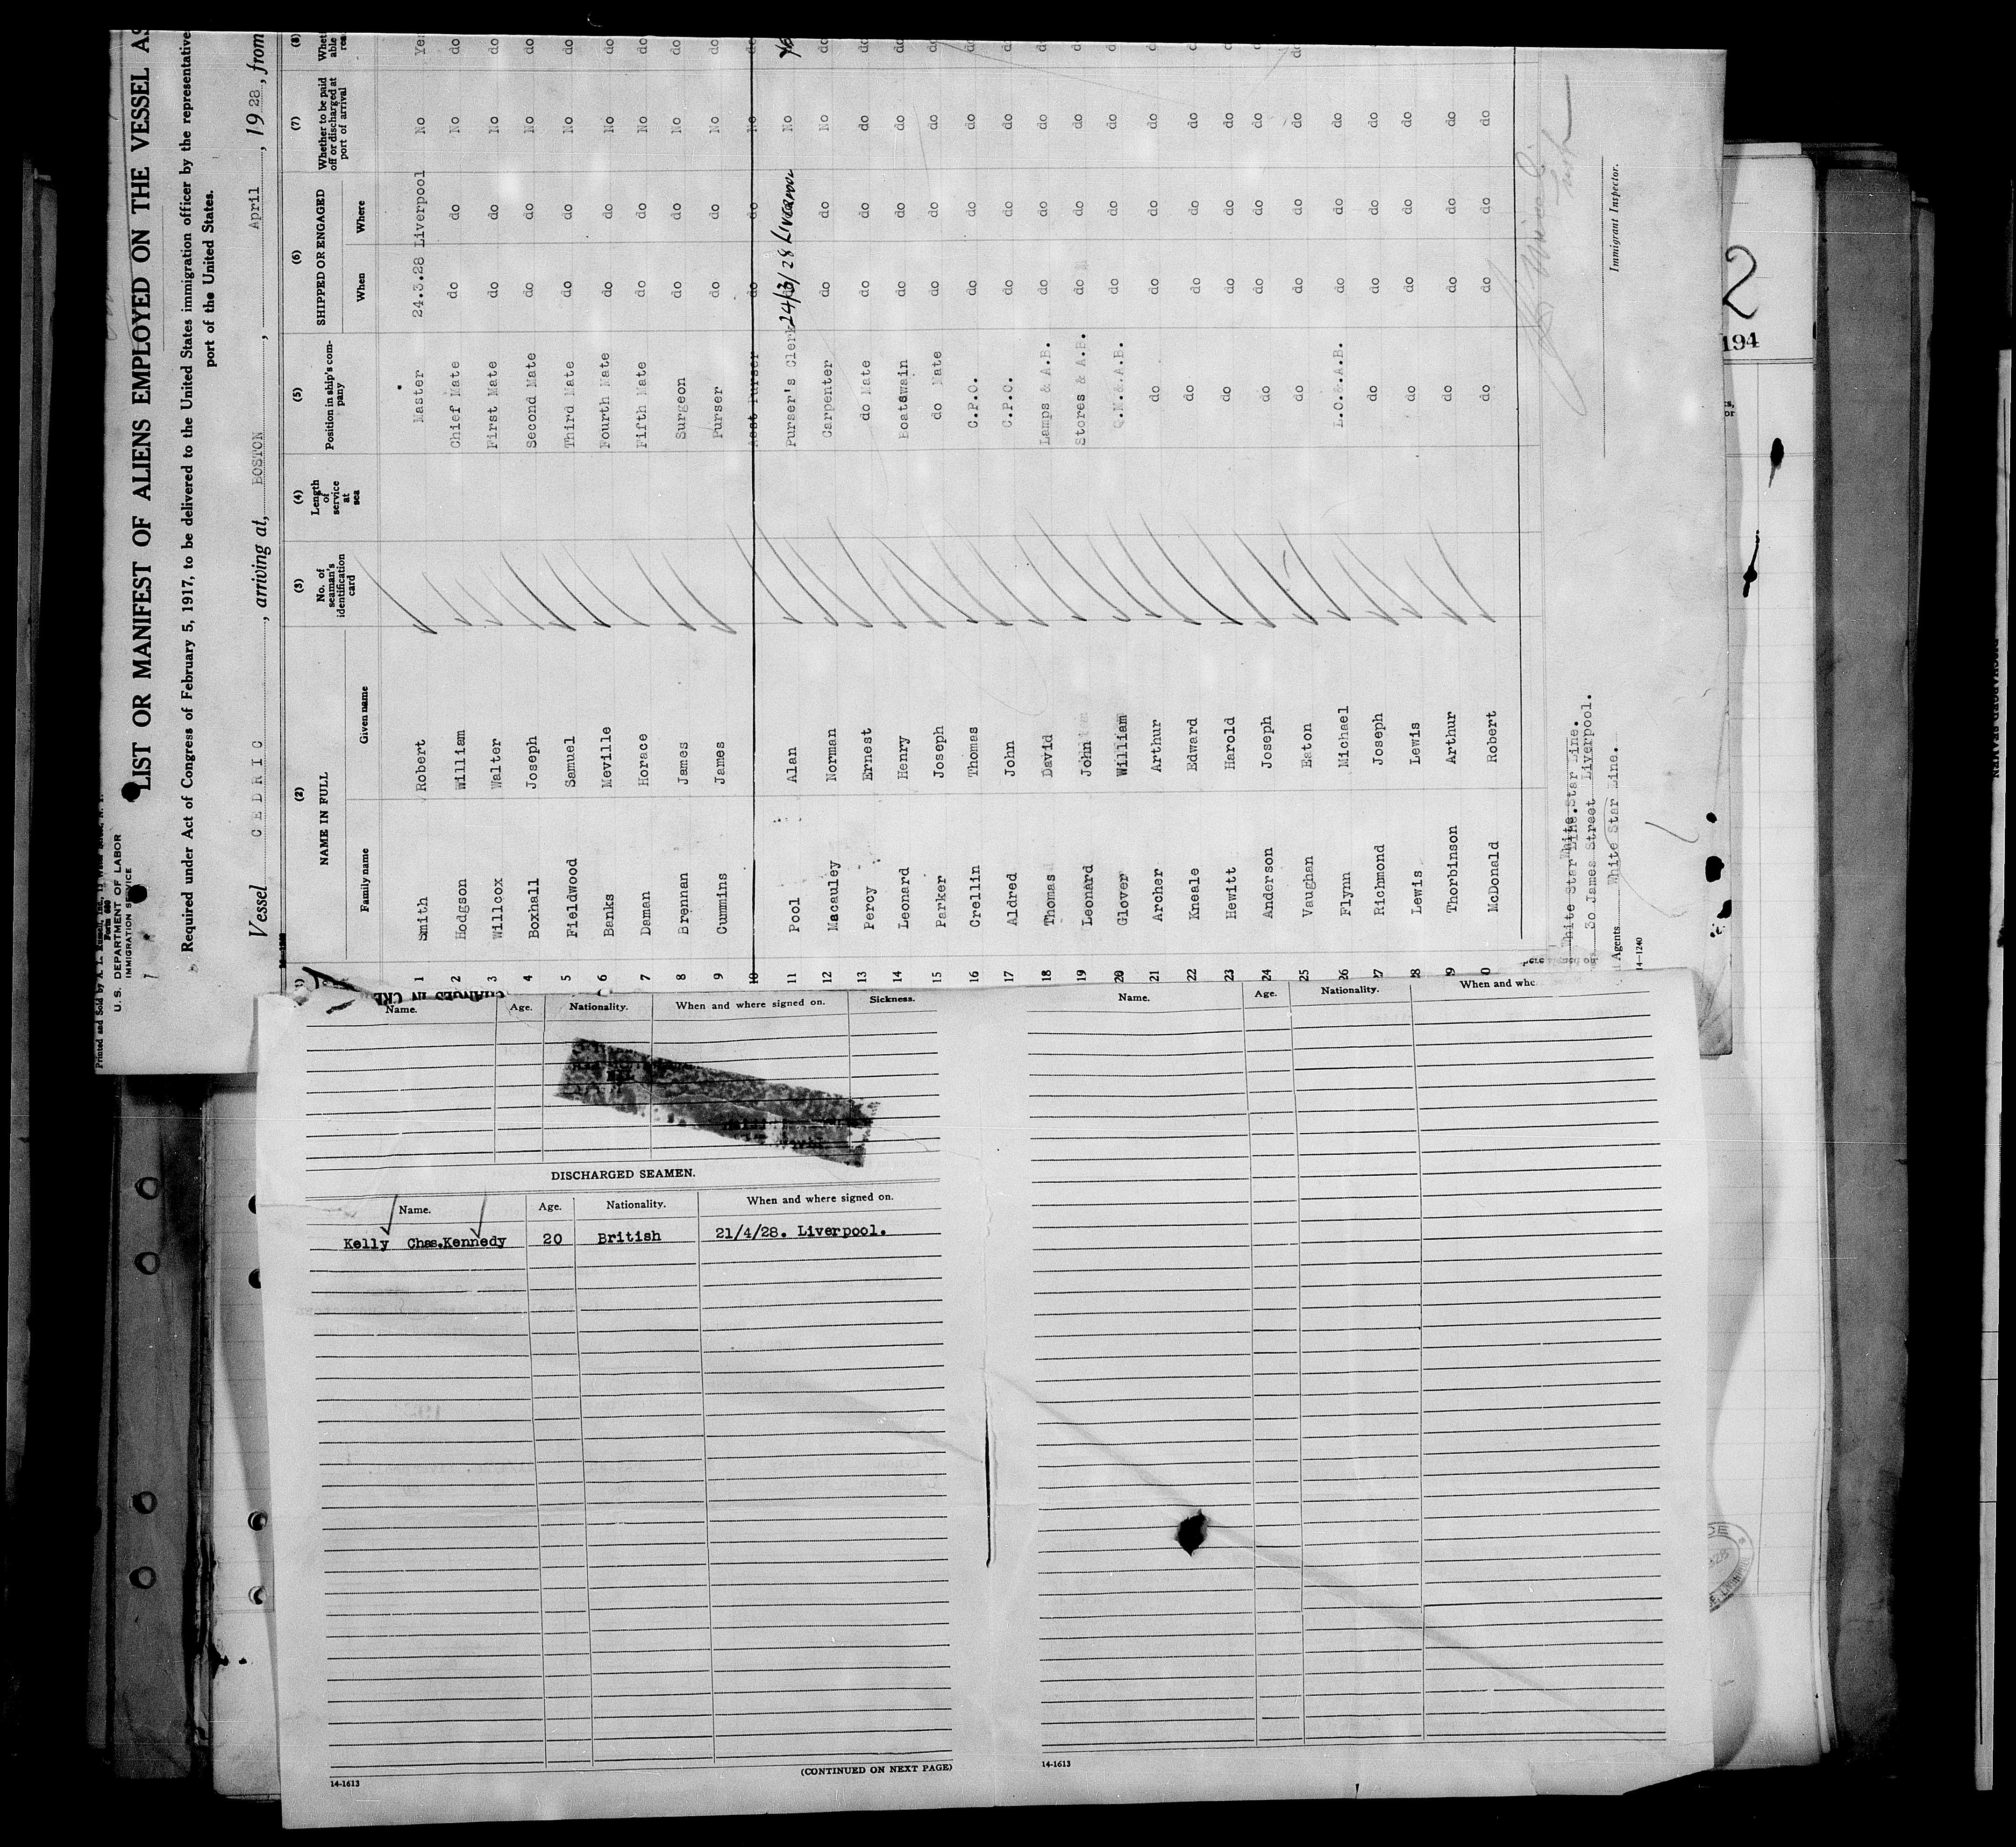 Printed and Sold by
Form 680
U. S. DEPARTMENT OF LABOR
IMMIGRATION SERVICE
LIST OR MANIFEST OF ALIENS EMPLOYED ON THE VESSEL AS
Required under Act of Congress of February 5, 1917, to be delivered to the United States immigration officer by the representative
port of the United States.
Vessel CEDRIC, arriving at, BOSTON, April, 1928, from
(2) (3) (4) (5) (6) (7) (8)
NAME IN FULL No. of seaman's identification card Length of service at sea Position in ship's company SHIPPED OR ENGAGED Whether to be paid off or discharged at port of arrival
Family name Given name When Where
1 Smith Robert Master 24.3.28 Liverpool No Yes
2 Hodgson William Chief Mate do do No do
3 Willcox Walter First Mate do do No do
4 Boxhall Joseph Second Mate do do No do
5 Fieldwood Samuel Third Mate do do No do
6 Banks Meville Fourth Mate do do No do
7 Daman Horace Fifth Mate do do No do
8 Brennan James Surgeon do do No do
9 Cummins James Purser do do No do
10 Asst Purser do do No do
11 Pool Alan Purser's Clerk 24/3/28 Liverpool No
12 Macauley Norman Carpenter do do No do
13 Percy Ernest do Mate do do do do
14 Leonard Henry Boatswain do do do do
15 Parker Joseph do Mate do do do do
16 Crellin Thomas C.P.O. do do do do
17 Aldred John C.P.O. do do do do
18 Thomas David Lamps & A.B. do do do do
19 Leonard John Stores & A.B. do do do do
20 Glover William Q.M.&.A.B. do do do do
21 Archer Arthur do do do do do
22 Kneale Edward do do do do do
23 Hewitt Harold do do do do do
24 Anderson Joseph do do do do do
25 Vaughan Eaton do do do do do
26 Flynn Michael L.O.&.A.B. do do do
27 Richmond Joseph do do do do
28 Lewis Lewis do do do do
29 Thorbinson Arthur do do do do
30 McDonald Robert do do do do
White Star Line.
30 James Street Liverpool.
Agents White Star Line.
Immigrant Inspector.
14-1240
194
2
Name. Age. Nationality. When and where signed on. Sickness.
DISCHARGED SEAMEN.
Name. Age. Nationality. When and where signed on.
Kelly Chas.Kennedy 20 British 21/4/28. Liverpool.
14-1613
(CONTINUED ON NEXT PAGE)
Name. Age. Nationality. When and whe
14-1613